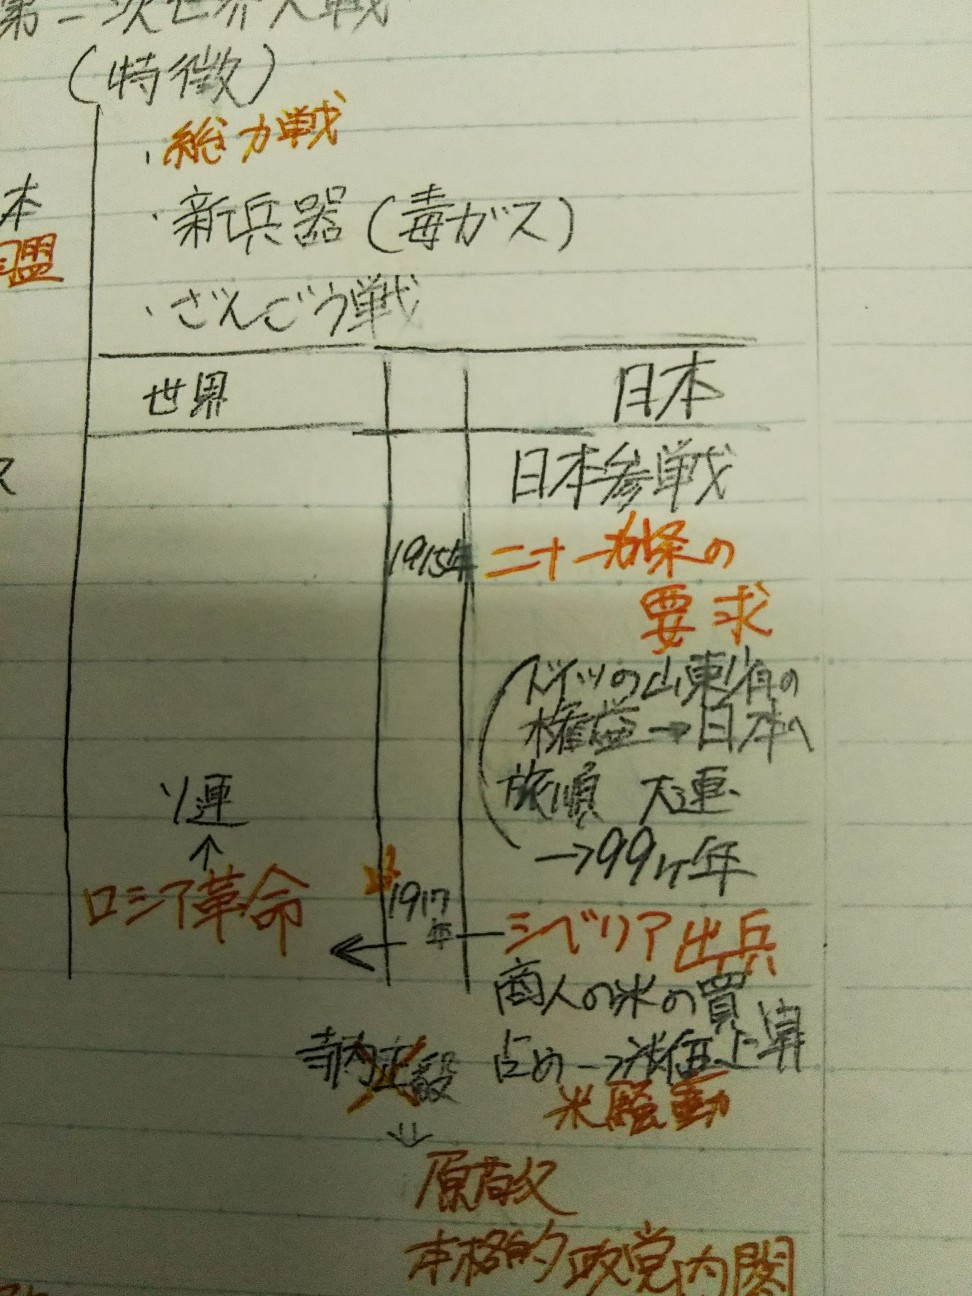 第一次世界大戦
(特徴)
・総力戦
本
同盟
・新兵器(毒ガス)
・ざんごう戦
世界
日本
ス
日本参戦
1915年 二十一カ条の
要求
ドイツの山東省の
権益→日本へ
旅順 大連
→99ヶ年
ソ連
↑
ロシア革命
1917
年
← シベリア出兵
商人の米の買
占め→米価上昇
米騒動
寺内正毅
⇓
原敬
本格的政党内閣